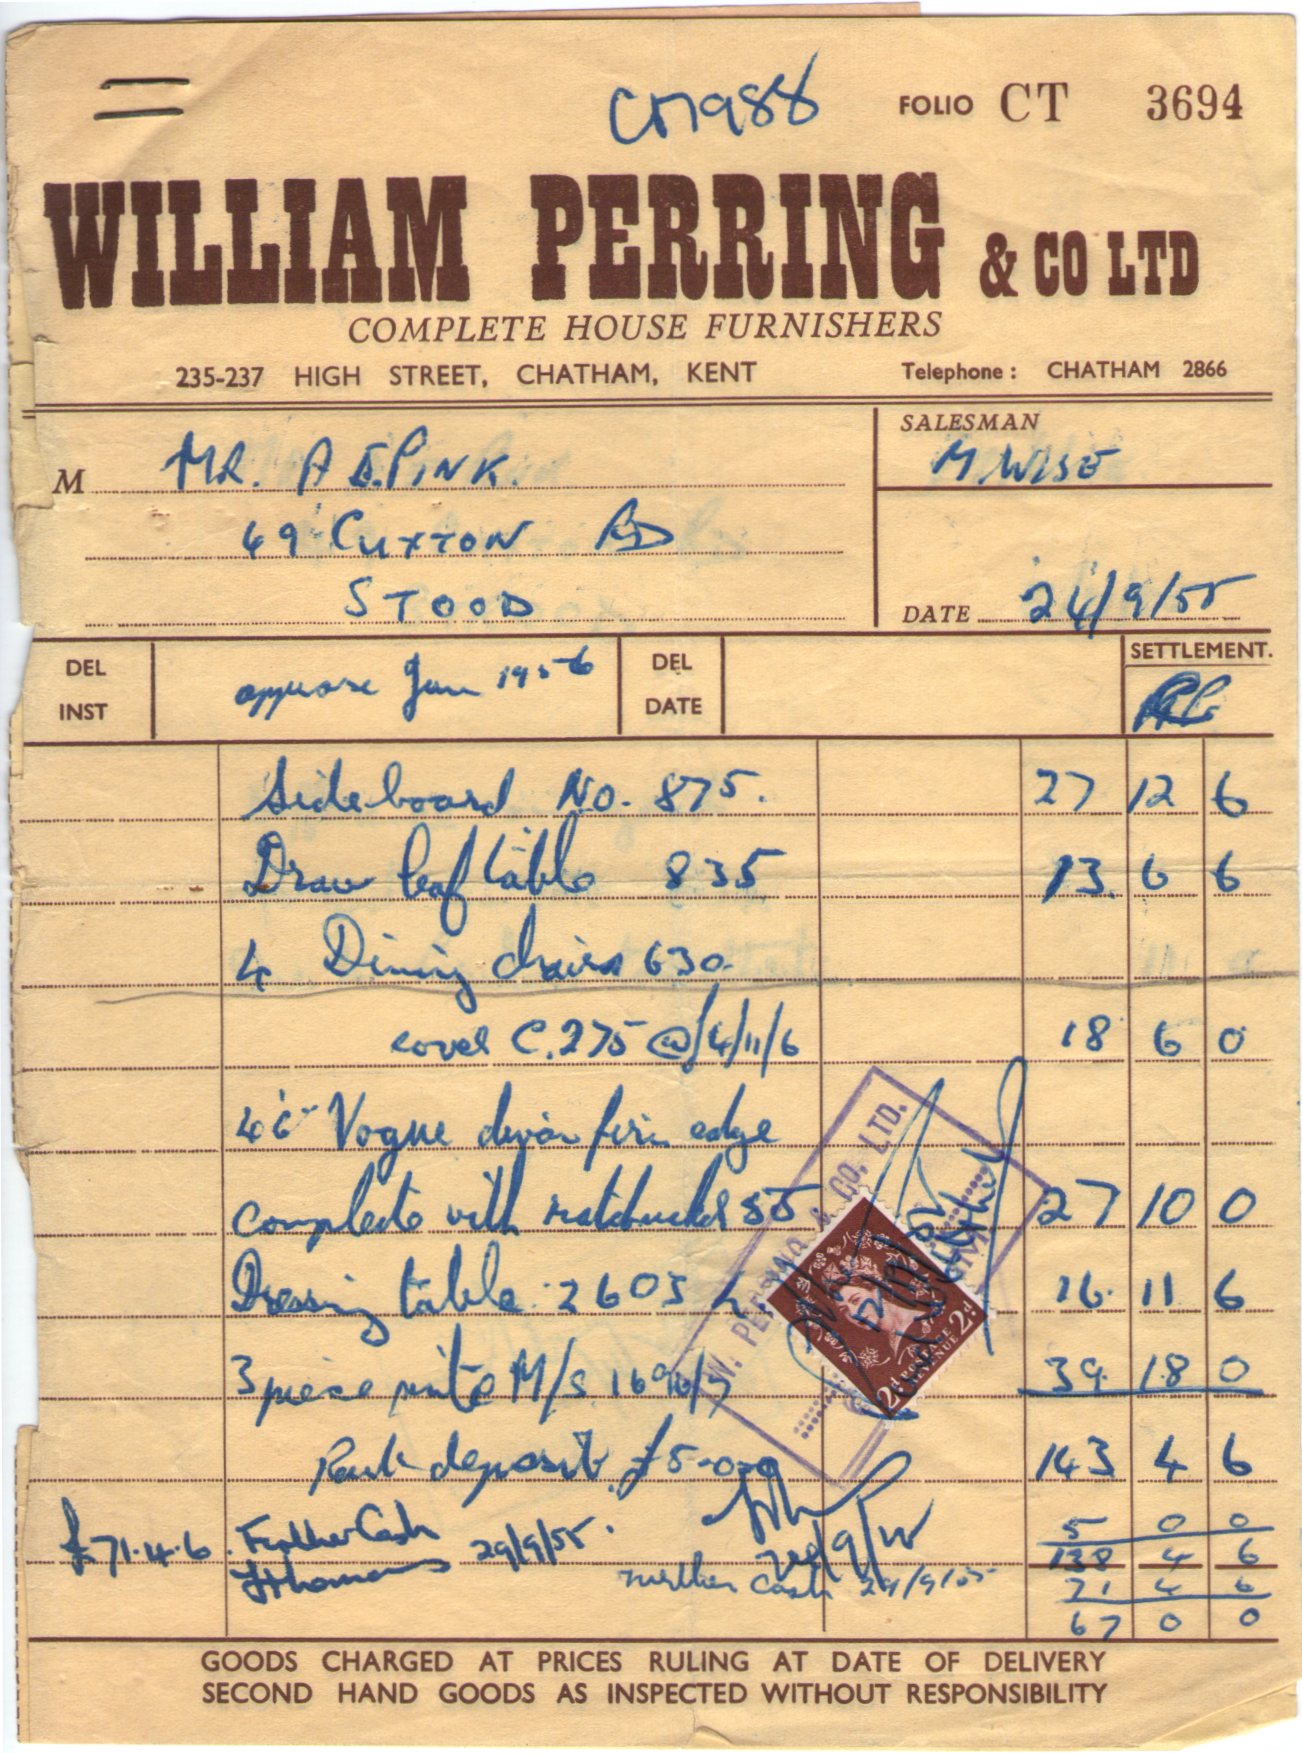 C17988 FOLIO CT 3694
WILLIAM PERRING & CO LTD
COMPLETE HOUSE FURNISHERS
235-237 HIGH STREET, CHATHAM, KENT Telephone: CHATHAM 2866
SALESMAN
M MR. A E. PINK. M WISE
49 CUXTON RD
STOOD DATE 24/9/55
DEL INST approx Jan 1956 DEL DATE SETTLEMENT.
Sideboard No. 875. 27 12 6
Draw leaf table 835 13. 6 6
4 Dining chairs 630
cover C.275 @ 4/11/6 18 6 0
4'6" Vogue divan firm edge
complete with 27 10 0
Dressing table 2603 16. 11 6
3 piece suite M/S 1696/7 39. 18 0
deposit £5-0-0 143 4 6
£71.4.6 Further Cash 29/9/55. 5 0 0
138 4 6
Further Cash 29/9/55 71 4 6
67 0 0
W. PERRING & CO. LTD.
2d POSTAGE REVENUE 2d
GOODS CHARGED AT PRICES RULING AT DATE OF DELIVERY
SECOND HAND GOODS AS INSPECTED WITHOUT RESPONSIBILITY